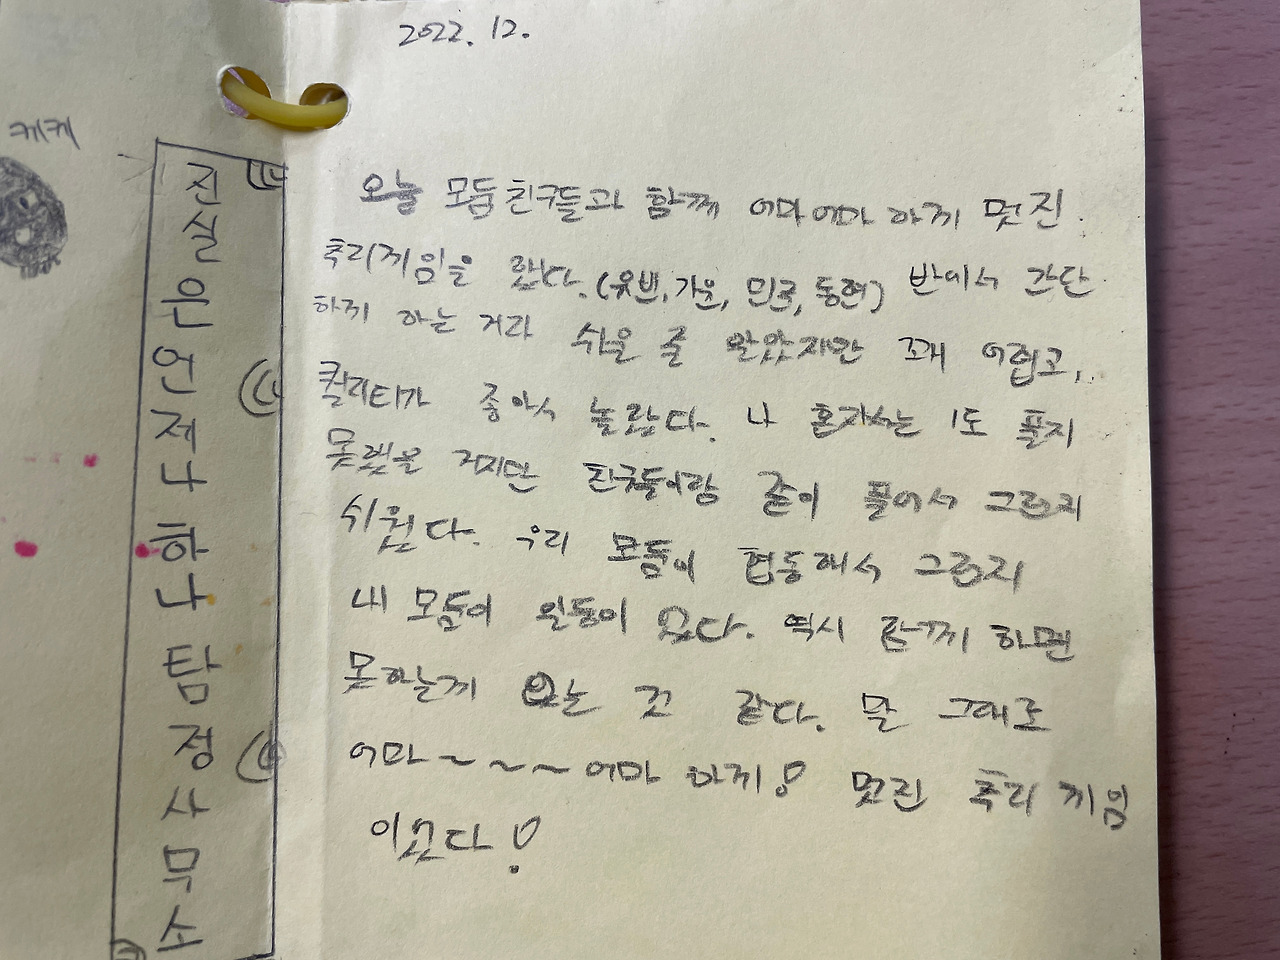 2022. 12.
케케
진실은 언제나 하나 탐정사무소
오늘 모둠친구들과 함께 어마어마 하게 멋진
추리게임을 했다. (유빈, 가윤, 민국, 동현) 반에서 간단
하게 하는 거라 쉬울 줄 알았지만 꽤 어렵고,
퀄리티가 좋아서 놀랐다. 나 혼자서는 1도 풀지
못했을 거지만 친구들이랑 같이 풀어서 그런지
쉬웠다. 우리 모둠이 협동해서 그런지
내 모둠이 일등이 였다. 역시 함께 하면
못하는게 없는 것 같다. 말 그대로
어마~~~어마 하게! 멋진 추리 게임
이였다!